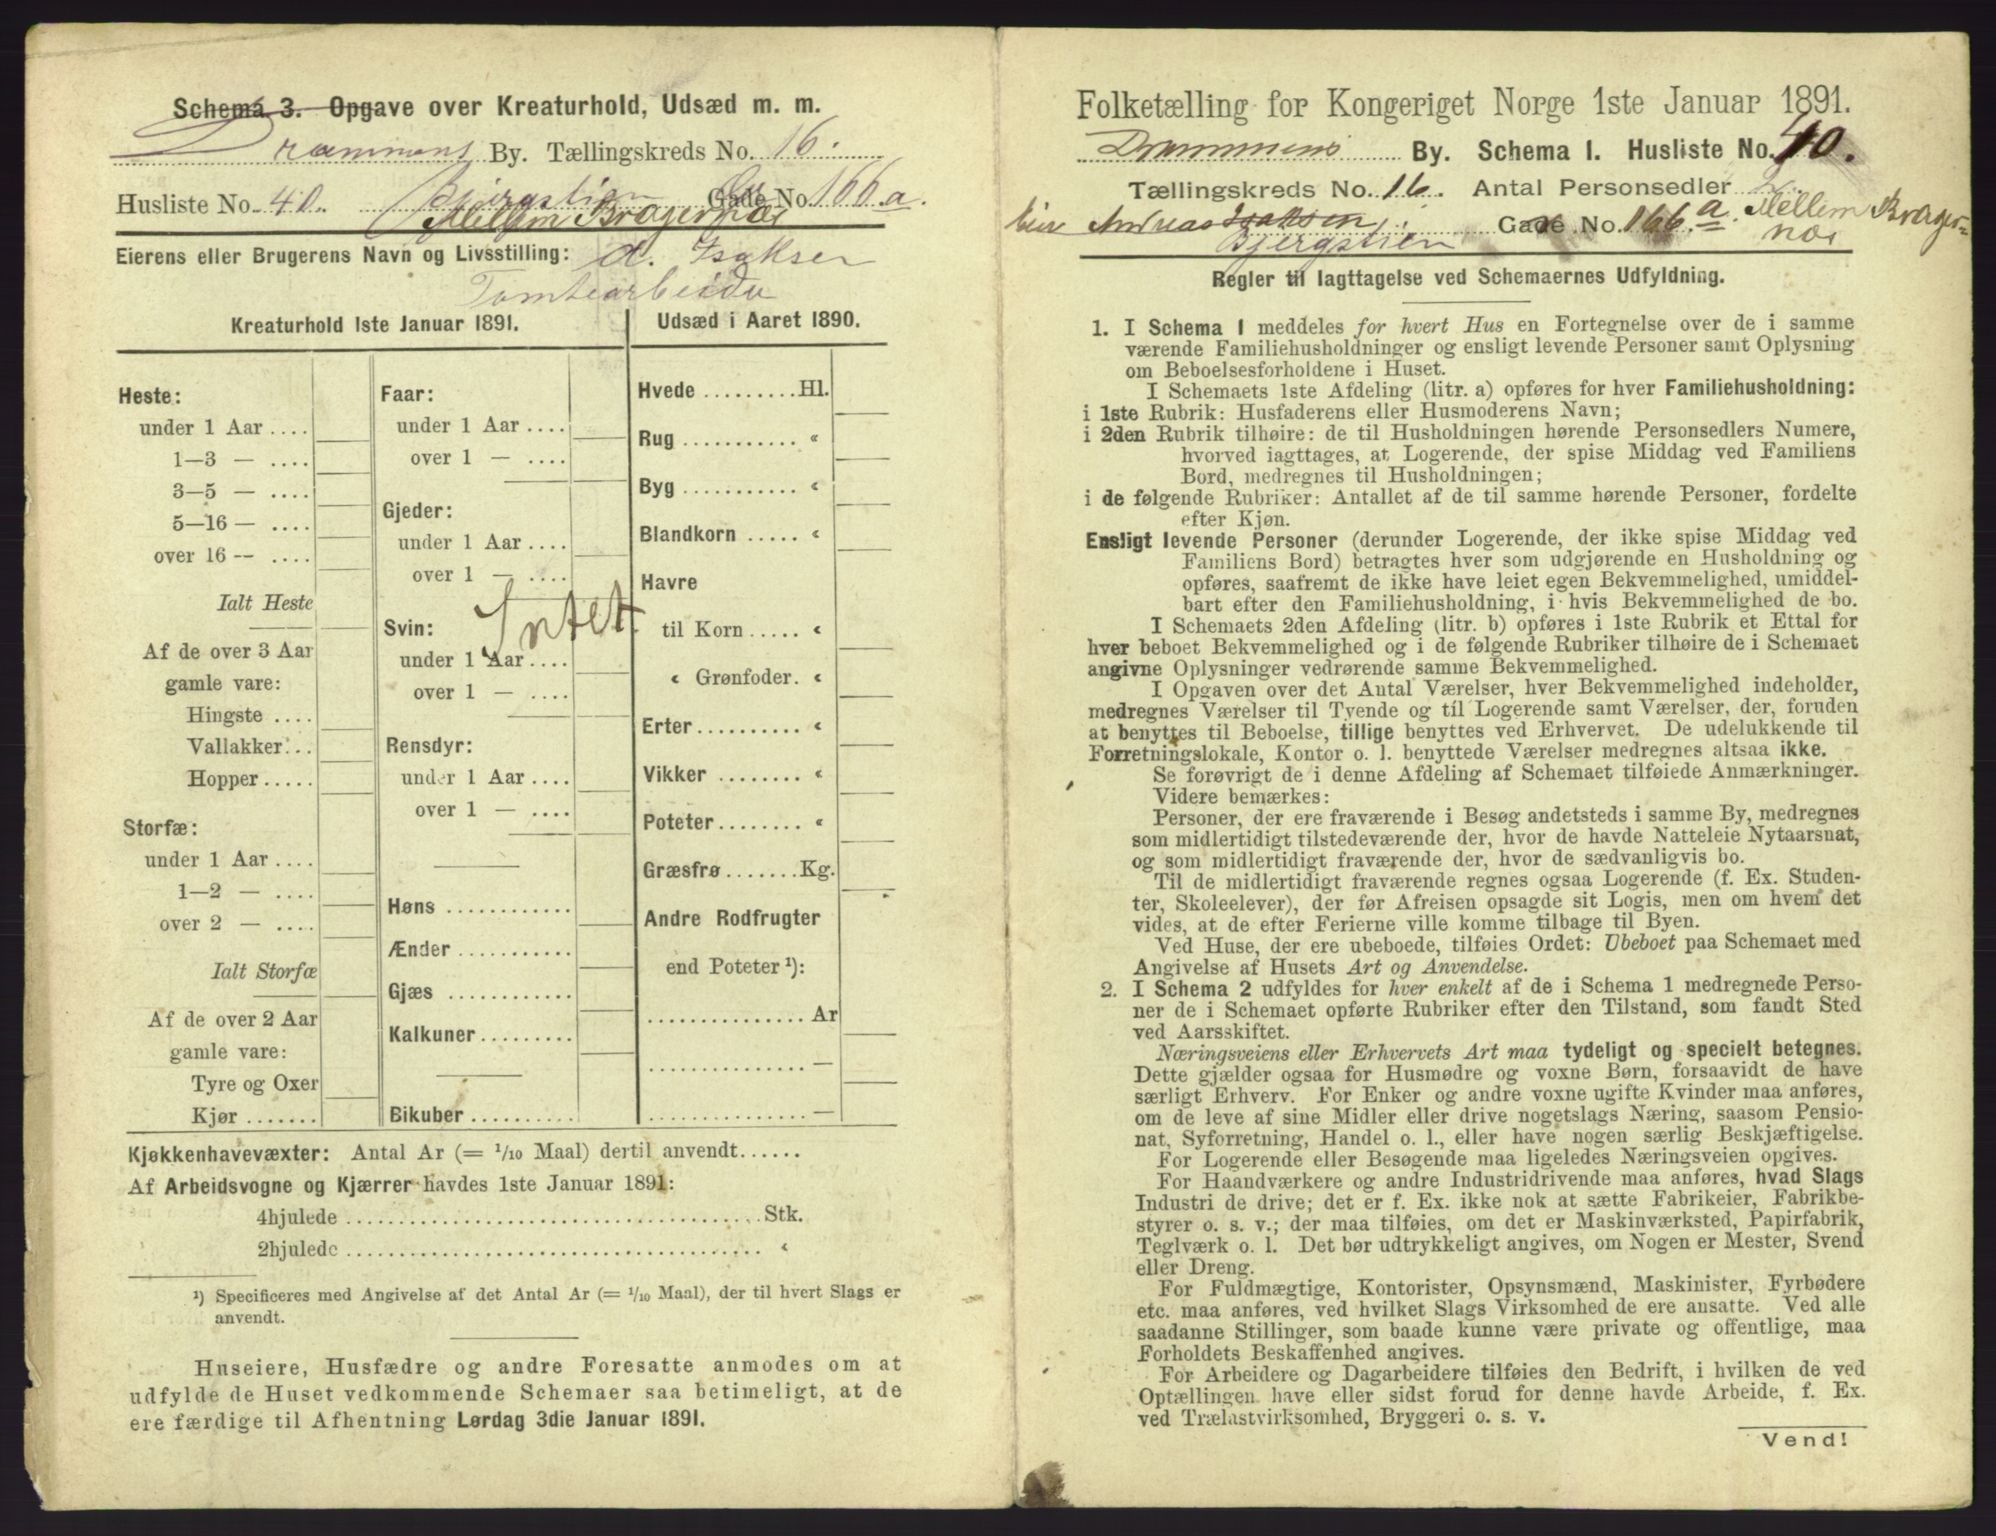 Schema 3. Opgave over Kreaturhold, Udsæd m. m.
Drammens By. Tællingskreds No. 16.
Husliste No. 40. Bjergstien Gade No. 166 a.
Mellem Bragernæs
Eierens eller Brugerens Navn og Livsstilling: A. Isaksen
Tomtearbeider
Kreaturhold 1ste Januar 1891.
Heste:
under 1 Aar ....
1—3 — ....
3—5 — ....
5—16 — ....
over 16 — ....
Ialt Heste
Af de over 3 Aar
gamle vare:
Hingste ....
Vallakker...
Hopper.....
Storfæ:
under 1 Aar ....
1—2 — ....
over 2 — ....
Ialt Storfæ
Af de over 2 Aar
gamle vare:
Tyre og Oxer
Kjør.......
Faar:
under 1 Aar ....
over 1 — ....
Gjeder:
under 1 Aar ....
over 1 — ....
Intet
Svin:
under 1 Aar ....
over 1 — ....
Rensdyr:
under 1 Aar ....
over 1 — ....
Høns ............
Ænder ...........
Gjæs ............
Kalkuner.........
Bikuber ..........
Udsæd i Aaret 1890.
Hvede .........Hl.
Rug ........... «
Byg ........... «
Blandkorn ..... «
Havre
til Korn ..... «
« Grønfoder. «
Erter .......... «
Vikker ........ «
Poteter........ «
Græsfrø.......Kg.
Andre Rodfrugter
end Poteter ¹):
............... Ar
............... —
............... —
Kjøkkenhavevæxter: Antal Ar (= 1/10 Maal) dertil anvendt......
Af Arbeidsvogne og Kjærrer havdes 1ste Januar 1891:
4hjulede ........................................ Stk.
2hjulede ........................................ «
¹) Specificeres med Angivelse af det Antal Ar (= 1/10 Maal), der til hvert Slags er
anvendt.
Huseiere, Husfædre og andre Foresatte anmodes om at
udfylde de Huset vedkommende Schemaer saa betimeligt, at de
ere færdige til Afhentning Lørdag 3die Januar 1891.
Folketælling for Kongeriget Norge 1ste Januar 1891.
Drammens By. Schema I. Husliste No. 40.
Tællingskreds No. 16. Antal Personsedler 2.
Eier Andreas Isaksen Gade No. 166. a Mellem Bragernæs
Bjergstien
Regler til Iagttagelse ved Schemaernes Udfyldning.
1. I Schema 1 meddeles for hvert Hus en Fortegnelse over de i samme
værende Familiehusholdninger og ensligt levende Personer samt Oplysning
om Beboelsesforholdene i Huset.
I Schemaets 1ste Afdeling (litr. a) opføres for hver Familiehusholdning:
i 1ste Rubrik: Husfaderens eller Husmoderens Navn;
i 2den Rubrik tilhøire: de til Husholdningen hørende Personsedlers Numere,
hvorved iagttages, at Logerende, der spise Middag ved Familiens
Bord, medregnes til Husholdningen;
i de følgende Rubriker: Antallet af de til samme hørende Personer, fordelte
efter Kjøn.
Ensligt levende Personer (derunder Logerende, der ikke spise Middag ved
Familiens Bord) betragtes hver som udgjørende en Husholdning og
opføres, saafremt de ikke have leiet egen Bekvemmelighed, umiddel-
bart efter den Familiehusholdning, i hvis Bekvemmelighed de bo.
I Schemaets 2den Afdeling (litr. b) opføres i 1ste Rubrik et Ettal for
hver beboet Bekvemmelighed og i de følgende Rubriker tilhøire de i Schemaet
angivne Oplysninger vedrørende samme Bekvemmelighed.
I Opgaven over det Antal Værelser, hver Bekvemmelighed indeholder,
medregnes Værelser til Tyende og til Logerende samt Værelser, der, foruden
at benyttes til Beboelse, tillige benyttes ved Erhvervet. De udelukkende til
Forretningslokale, Kontor o. l. benyttede Værelser medregnes altsaa ikke.
Se forøvrigt de i denne Afdeling af Schemaet tilføiede Anmærkninger.
Videre bemærkes:
Personer, der ere fraværende i Besøg andetsteds i samme By, medregnes
som midlertidigt tilstedeværende der, hvor de havde Natteleie Nytaarsnat,
og som midlertidigt fraværende der, hvor de sædvanligvis bo.
Til de midlertidigt fraværende regnes ogsaa Logerende (f. Ex. Studen-
ter, Skoleelever), der før Afreisen opsagde sit Logis, men om hvem det
vides, at de efter Ferierne ville komme tilbage til Byen.
Ved Huse, der ere ubeboede, tilføies Ordet: Ubeboet paa Schemaet med
Angivelse af Husets Art og Anvendelse.
2. I Schema 2 udfyldes for hver enkelt af de i Schema 1 medregnede Perso-
ner de i Schemaet opførte Rubriker efter den Tilstand, som fandt Sted
ved Aarsskiftet.
Næringsveiens eller Erhvervets Art maa tydeligt og specielt betegnes.
Dette gjælder ogsaa for Husmødre og voxne Børn, forsaavidt de have
særligt Erhverv. For Enker og andre voxne ugifte Kvinder maa anføres,
om de leve af sine Midler eller drive nogetslags Næring, saasom Pensio-
nat, Syforretning, Handel o. l., eller have nogen særlig Beskjæftigelse.
For Logerende eller Besøgende maa ligeledes Næringsveien opgives.
For Haandværkere og andre Industridrivende maa anføres, hvad Slags
Industri de drive; det er f. Ex. ikke nok at sætte Fabrikeier, Fabrikbe-
styrer o. s. v.; der maa tilføies, om det er Maskinværksted, Papirfabrik,
Teglværk o. l. Det bør udtrykkeligt angives, om Nogen er Mester, Svend
eller Dreng.
For Fuldmægtige, Kontorister, Opsynsmænd, Maskinister, Fyrbødere
etc. maa anføres, ved hvilket Slags Virksomhed de ere ansatte. Ved alle
saadanne Stillinger, som baade kunne være private og offentlige, maa
Forholdets Beskaffenhed angives.
For Arbeidere og Dagarbeidere tilføies den Bedrift, i hvilken de ved
Optællingen have eller sidst forud for denne havde Arbeide, f. Ex.
ved Trælastvirksomhed, Bryggeri o. s. v.
Vend!